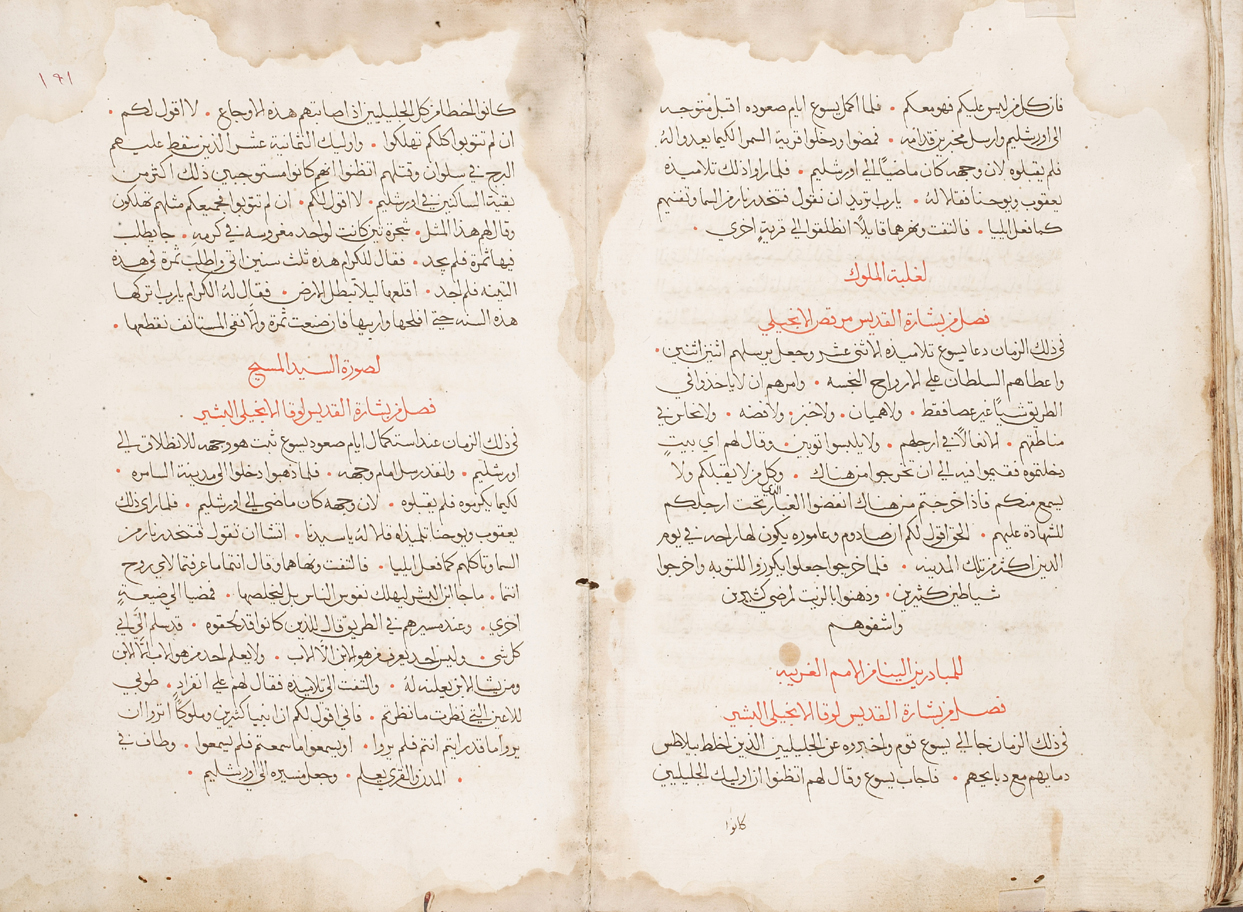 فان كل من ليس عليكم فهو معكم · فلما اكمل يسوع ايام صعوده اقبل متوجه
الى اورشليم وارسل مخبرين قدامه · فمضوا ودخلوا قرية السمرا لكيما يعدوا له
فلم يقبلوه لان وجهه كان ماضيًا الى اورشليم · فلما راوا ذلك تلاميذه
يعقوب ويوحنا فقالا له · يارب تريد ان نقول فتنحدر نار من السما وتفنيهم
كما فعل ايليا · فالتفت ونهرهما قايلًا انطلقوا الى قريةٍ اخرى ·
لغلبة الملوك
فصل من بشارة القديس مرقص الانجيلي
في ذلك الزمان دعا يسوع تلاميذه الاثنى عشر وجعل يرسلهم اثنين اثنين ·
واعطاهم السلطان على الارواح النجسه · وامرهم ان لا ياخذوا في
الطريق شيًا غير عصا فقط · ولا هميان · ولا خبز · ولا فضه · ولا نحاس في
مناطقهم · الا نعالًا في ارجلهم · ولا يلبسوا ثوبين · وقال لهم اي بيتٍ
دخلتموه فقيموا فيه الى ان تخرجوا من هناك · وكل من لا يقبلكم ولا
يسمع منكم فاذا خرجتم من هناك انفضوا الغبار الذي تحت ارجلكم
للشهادة عليهم · الحق اقول لكم ان صادوم وعاموره يكون لها راحه في يوم
الدين اكثر من تلك المدينه · فلما خرجوا جعلوا يكرزوا للتوبه واخرجوا
شياطين كثيرين · ودهنوا بالزيت لمرضى كثيرين
واشفوهم
للمبادرين الينا من الامم الغريبه
فصل من بشارة القديس لوقا الانجيلي البشير
في ذلك الزمان جا الى يسوع قوم واخبروه عن الجليليين الذين خلط بيلاطس
دمايهم مع دبايحهم · فاجاب يسوع وقال لهم اتظنوا ان اوليك الجليليين
كانوا
١٩١
كانوا اخطا من كل الجليليين اذ اصابتهم هذه الاوجاع · لا اقول لكم ·
ان لم تتوبوا كلكم تهلكوا · واوليك الثمانية عشر الذين سقط عليهم
البرج في سلوان وقتلهم اتظنوا انهم كانوا مستوجبين ذلك اكثر من
بقية الساكنين في اورشليم · لا اقول لكم · ان لم تتوبوا فجميعكم مثلهم تهلكون
وقال لهم هذا المثل · شجرة تين كانت لواحد مغروسه في كرمهِ · جا يطلب
فيها ثمرة فلم يجد · فقال للكرام هذه ثلث سنين اتي واطلب ثمرة في هذه
التينه فلم اجد · اقلعها ليلا تبطل الارض · فقال له الكرام يارب اتركها
هذه السنه حتى افلحها واربيها فان صنعت ثمرة والا ففي المستانف نقطعها ·
لصورة السيد المسيح
فصل من بشارة القديس لوقا الانجيلي البشير
في ذلك الزمان عند استكمال ايام صعود يسوع ثبت هو وجهه للانطلاق الى
اورشليم · وانفذ رسل امام وجهه · فلما ذهبوا دخلوا الى مدينة السامره ·
لكيما يكرموه فلم يقبلوه · لان وجهه كان ماضي الى اورشليم · فلما راى ذلك
يعقوب ويوحنا تلميذاه قالا له يا سيدنا · اتشا ان نقول فتنحدر نار من
السما وتاكلهم كما فعل ايليا · فالتفت ونهاهما وقال انتما ما عرفتما لاي روح
انتما · ما جا ابن البشر ليهلك نفوس الناس بل ليخلصها · فمضيا الى ضيعةٍ
اخرى · وعند مسيرهم في الطريق قال للذين كانوا قد لحقوه · قد سلم الَيَّ ابي
كل شي · وليس احد يعرف من هو الابن الا الاب · ولا يعلم احد من هو الاب الا الابن
ومن يشا الابن يعلنه له · والتفت الى تلاميذه فقال لهم على انفرادٍ · طوبى
للاعين التي نظرت ما نظرتم · فاني اقول لكم ان انبيا كثيرين وملوكًا اثروا ان
يروا ما قد رايتم انتم فلم يروا · او يسمعوا ما سمعتم فلم يسمعوا · وطاف في
المدن والقرى يعلم · وجعل مسيره الى اورشليم ·